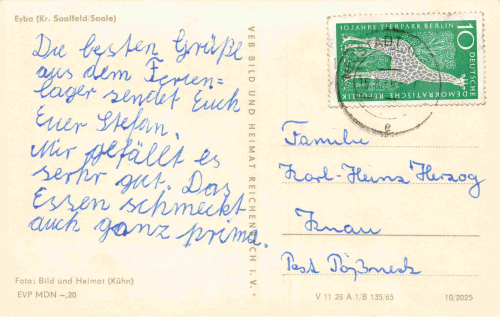 Eyba (Kr. Saalfeld/Saale)
Die besten Grüße
aus dem Ferien=
lager sendet Euch
Euer Stefan.
Mir gefällt es
sehr gut. Das
Essen schmeckt
auch ganz prima.
Foto: Bild und Heimat (Kühn)
EVP MDN –,20
VEB BILD UND HEIMAT REICHENBACH I. V.
10 JAHRE TIERPARK BERLIN
10
DEUTSCHE
DEMOKRATISCHE REPUBLIK
e
Familie
Karl-Heinz Herzog
Knau
Post Pößneck
V 11 28 A 1/B 135/65
10/2025